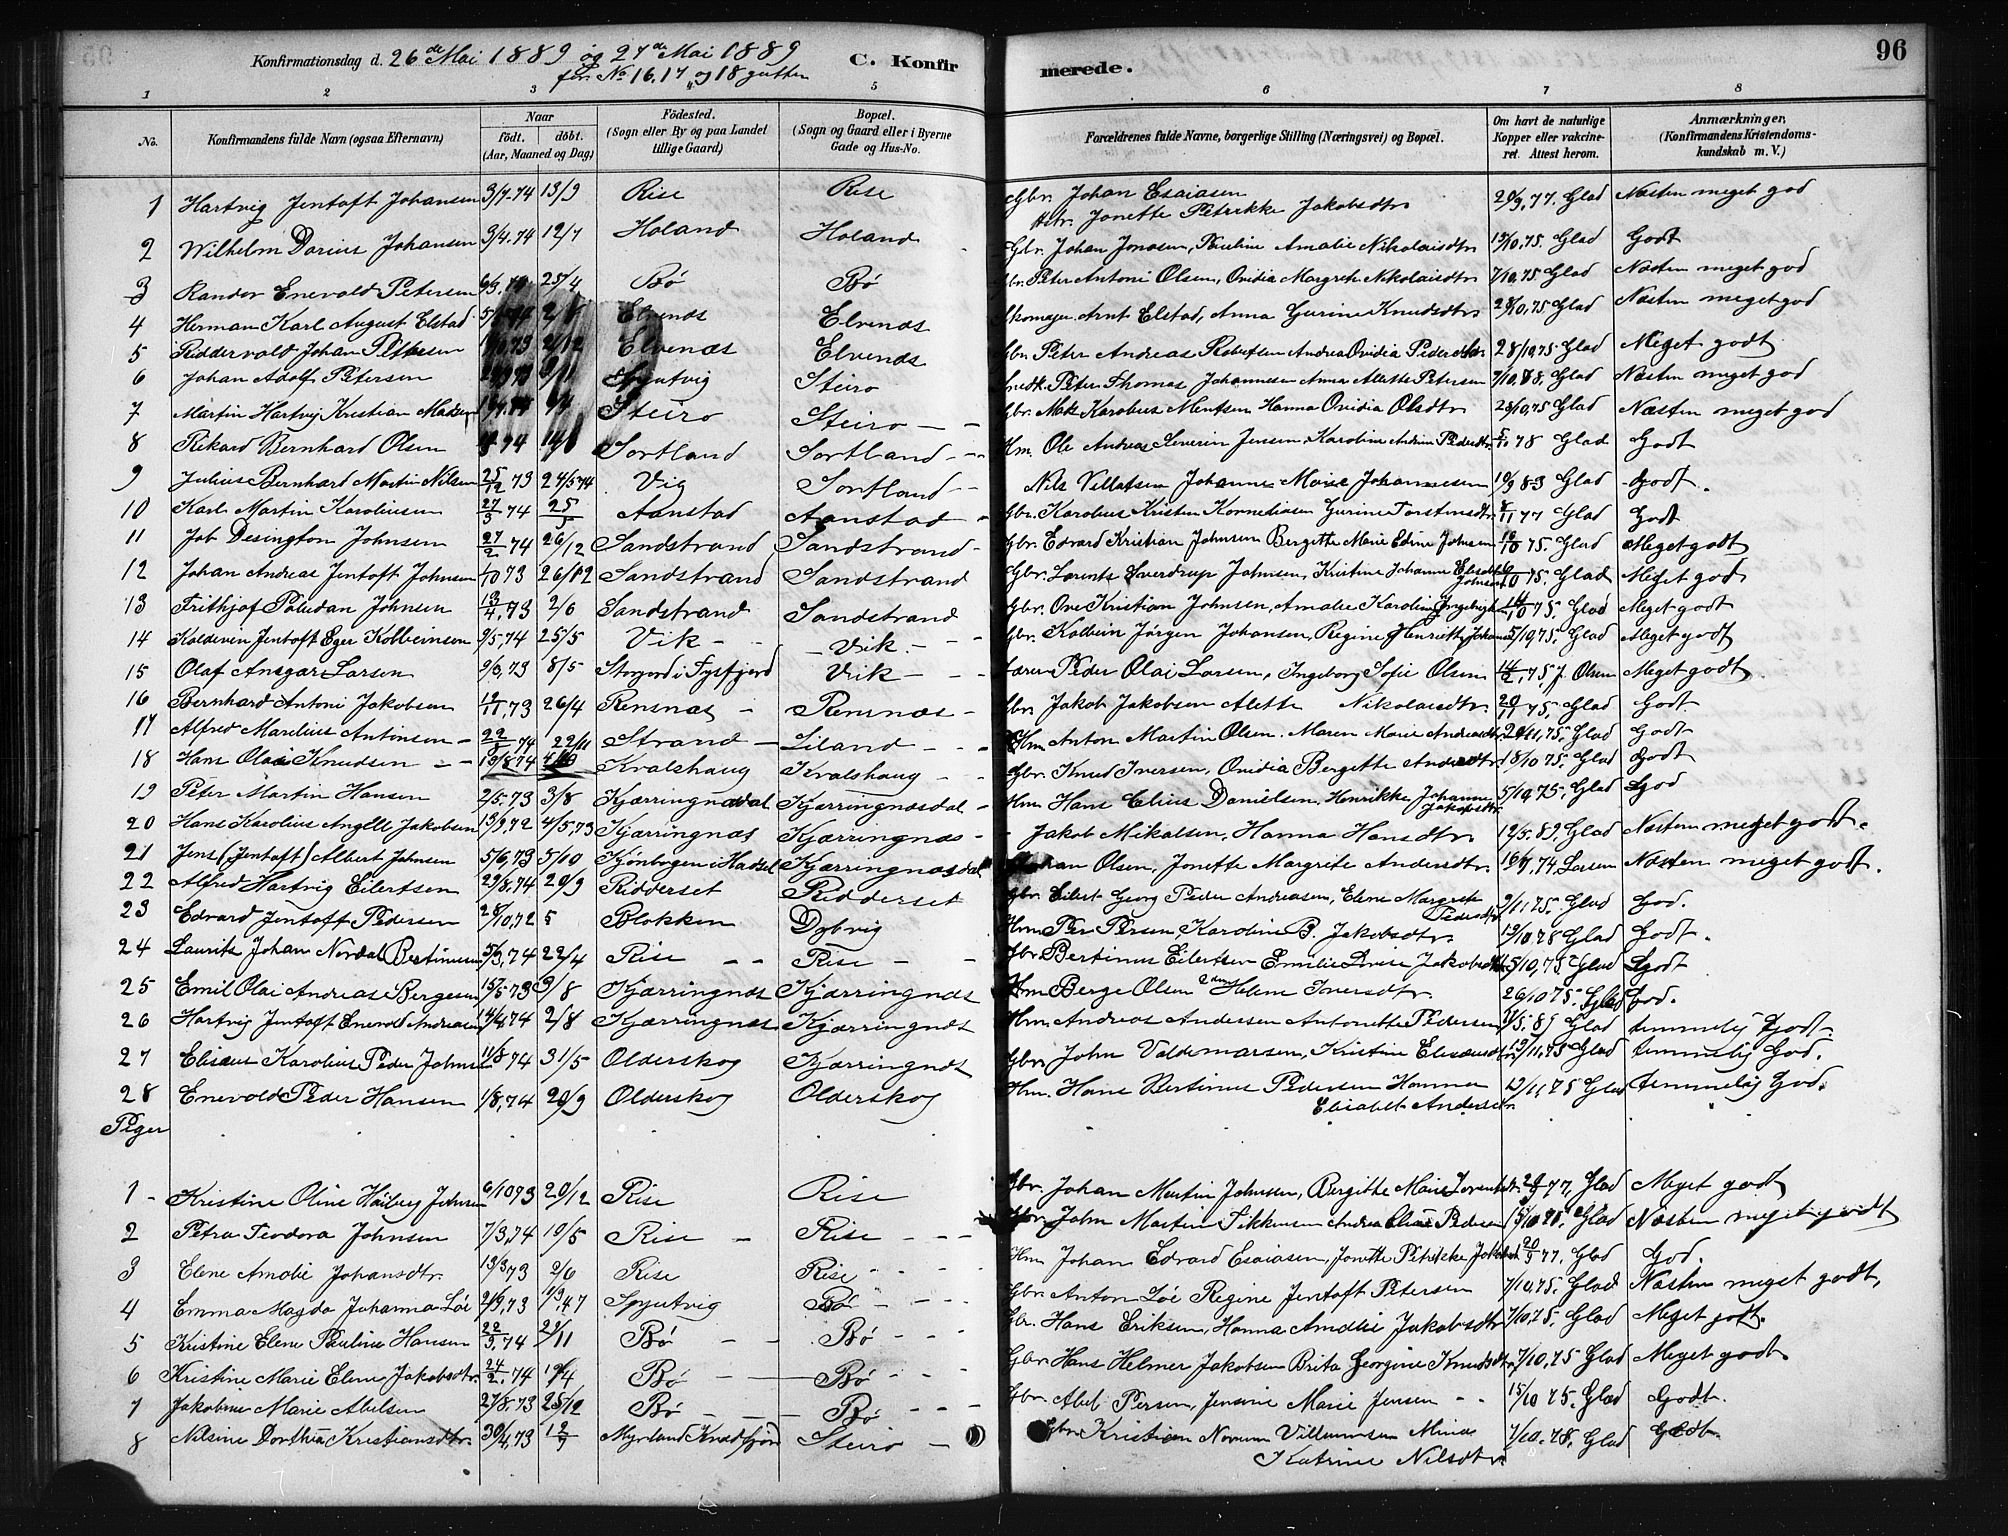 Konfirmationsdag d. 26de Mai 1889 og 27de Mai 1889 C. Konfirmerede. 96
for No 16, 17 og 18 gutter
1 2 3 4 5 6 7 8
No. Konfirmandens fulde Navn (ogsaa Efternavn), Naar født. døbt. (Aar, Maaned og Dag) Fødested. (Sogn eller By og paa Landet tillige Gaard) Bopæl. (Sogn og Gaard eller i Byerne Gade og Hus-No. Forældrenes fulde Navne, borgerlige Stilling (Næringsvei) og Bopæl. Om havt de naturlige Kopper eller vakcineret. Attest herom. Anmærkninger, (Konfirmandens Kristendomskundskab m. V.)
1 Hartvig Jentoft Johansen 3/7 74 13/9 Rise Rise Gbr. Johan Esaiasen Hstr. Jonette Petrikke Jakobsdtr. 20/9 77. Glad Næsten meget god
2 Wilhelm Dorius Johansen 3/4 74 12/7 Holand Holand Gbr. Johan Jonasen, Pauline Amalie Nikolaisdtr 13/10 75. Glad Godt
3 Randor Enevold Petersen 25/4 Bø Bø Gbr. Peter Antoni Olsen, Ovidia Margrete Nikolaisdtr 7/10 75 Glad Næsten meget god
4 Herman Karl August Elstad Elvenæs Elvenæs Skomager Arnt Elstad, Anna Gurine Knudsdtr 28/10, 75. Glad Næsten meget god
5 Riddervold Johan Petersen 73 Elvenæs Elvenæs Gbr. Peter Andreas Robertsen Andrea Ovidia Pedersdtr 28/10, 75 Glad Meget godt
6 Johan Adolf Petersen Spjutvig Steiro Snedk. Peter Thomas Johannesen Anna Alette Petersen 7/10, 78. Glad Næsten meget god
7 Martin Hartvig Kristian Steiro Steiro Gbr. Karolius Mentsen Hanna Ovidia Olsdtr 23/10, 75 Glad Næsten meget god
8 Rikard Bernhard Olsen 74 Sortland Sortland Hm. Ole Andreas Severin Jensen, Karoline Pedersdtr. 78 Glad Godt
9 Julius Bernhard Martin Nilsen 25/12 73 24/5 74 Vig Sortland Nils Villatsen Johanna Marie Johannesen 10/9 83 Glad Godt.
10 Karl Martin Karoliusen 27/3 74 25/5 Aanstad Aanstad Gbr. Karolius Kristen Korneliasen Gurine Torstensdtr 77 Glad Godt
11 Job Desington Johnsen 27/2 74 26/12 Sandstrand Sandstrand Gbr. Edvard Kristian Johnsen Bergitte Marie Edine Johnsen 75. Glad Meget godt
12 Johan Andreas Jentoft Johnsen 1/10 73 26/12 Sandstrand Sandstrand Gbr. Lorents Sverdrup Johnsen, Kristine Johanne Johnsen 75. Glad Meget god
13 Frithjof Paludan Johnsen 13/4, 73 2/6 Sandstrand Sandstrand Gbr. Ove Kristian Johnsen, Amalie Karoline 75. Glad Meget godt
14 Koldevin Jentoft Eger Kolbeinsen 9/5, 74 25/5 Vik Vik Gbr. Kolbein Jørgen Johansen, Regine Henriette 5/10, 75. Glad Meget godt
15 Olaf Ansgar Larsen 9/3, 73 8/5 Storjord i Tysfjord Vik Lærer Peder Olai Larsen, Ingeborg Sofie Olsen 14/2, 75, J. Olsen Meget godt
16 Bernhard Antoni Jakobsen 12/11, 73 26/4 Rensnæs Rensnæs Gbr. Jakob Jakobsen Alette Nikolaisdtr. 20/11 75, Glad Godt
17 Alfred Marelius Antonsen 22/8 74 22/11 Strand Liland Hm Anton Martin Olsen. Maren Marie Andreasdtr 75, Glad Godt
18 Hans Olai Knudsen 10/8, 74 Kralshaug Kvalshaug Gbr. Knud Iversen, Ovidia Bergette Andersdtr 18/10 75. Glad Godt
19 Peter Martin Hansen 2/5, 73 3/8 Kjærringnæsdal Kjærringnæsdal Hm Hans Elius Danielsen, Henrikke Johanna Jakobsdtr. 5/10, 75. Glad God
20 Hans Karolius Angell Jakobsen 13/9, 72 4/5, 73 Kjærringnæs Kjærringnæs Jakob Mikalsen, Hanna Hansdtr 12/5. 89, Glad Næsten meget godt.
21 Jens (Jentoft) Albert Johnsen 5/6, 73 5/10 Kjønbogen i Hadsel Kjærringnæsdal Johan Olsen, Jonette Margrete Andersdtr. 16/7, 74, Larsen Næsten meget godt.
22 Alfred Hartvig Eilertsen 29/8, 74 20/9 Ridderset Ridderset Gbr. Eilert Georg Peder Andreasen, Elene Margrete Pedersdtr 9/11 75. Glad God.
23 Edvard Jentoft Pedersen 28/10, 72 5 Blokken Dybvig Hm Per Persen, Karoline B. Jakobsdtr. 13/10, 78 Glad Godt.
24 Laurits Johan Nordal Bertinusen 5/3, 74 22/4 Rise Rise Gbr Bertinus Eilertsen Emilie Jakobsdtr 5/10, 75 Glad Godt
25 Emil Olai Andreas Bergesen 15/5 73 3/8 Kjærringnæs Kjærringnæs Hm Berge Olsen Helene Iversdtr. 26/10 75. Glad God.
26 Hartvig Jentoft Enevold Andreasen 74 2/8 Kjærringnæs Kjærringnæs Hm. Andreas Andersen Antonette Pedersen 11/5, 89 Glad temmelig Godt.
27 Elisæus Karolius Peder Johnsen 11/3, 74 31/5 Olderskog Kjærringnæs Gbr. John Valdemarsen, Kristine Elisæusdtr 13/11, 75 Glad temmelig God.
28 Enevold Peder Hansen 1/8, 74 20/9 Olderskog Olderskog Hm. Hans Bertinus Pedersen Hanna Elisabet Andersdtr. 13/11, 75 Glad temmelig God.
Piger
1 Kristine Oline Heiberg Johnsen 6/10 73 20/12 Rise Rise Gbr. Johan Martin Johnsen, Bergitte Marie Lorentsdtr 77, Glad Meget godt
2 Petra Teodora Johnsen 7/3, 74 10/5 Rise Rise Gbr. John Martin Sikkensen Andrea Elise Pedersen 15/10 75. Glad Næsten meget godt
3 Elene Amalie Johansdtr. 13/3 73 2/6 Rise Rise Hm Johan Edvard Esaiasen, Jonette Petrikke 20/9 77. Glad God.
4 Emma Magda Johanna Löe 2/9, 73 Spjutvig Bø Gbr. Anton Löe Regine Jentoft Petersen 7/10, 75. Glad Næsten meget godt,
5 Kristine Elene Pauline Hansen 22/9, 74 22/11 Bø Bø Gbr. Hans Eriksen, Hanna Amalie Jakobsdtr 7/10, 75. Glad Meget godt.
6 Kristine Marie Elene Jakobsdtr. 24/2, 74 12/4 Bø Bø Gbr Hans Helmer Jakobsen Brita Georgine Knudsdtr 7/10, 75 Glad Meget godt.
7 Jakobine Marie Abelsen 27/8. 73 25/12 Bø Bø Gbr. Abel Persen, Jensine Marie Jensen 15/10 75. Glad Godt.
8 Nilsine Dorthea Kristiansdtr. 30/4, 73 Myrland Steiro Gbr. Kristian Norum Villumsen Minas Katrine Nilsdtr. 7/10, 78, Glad Godt.